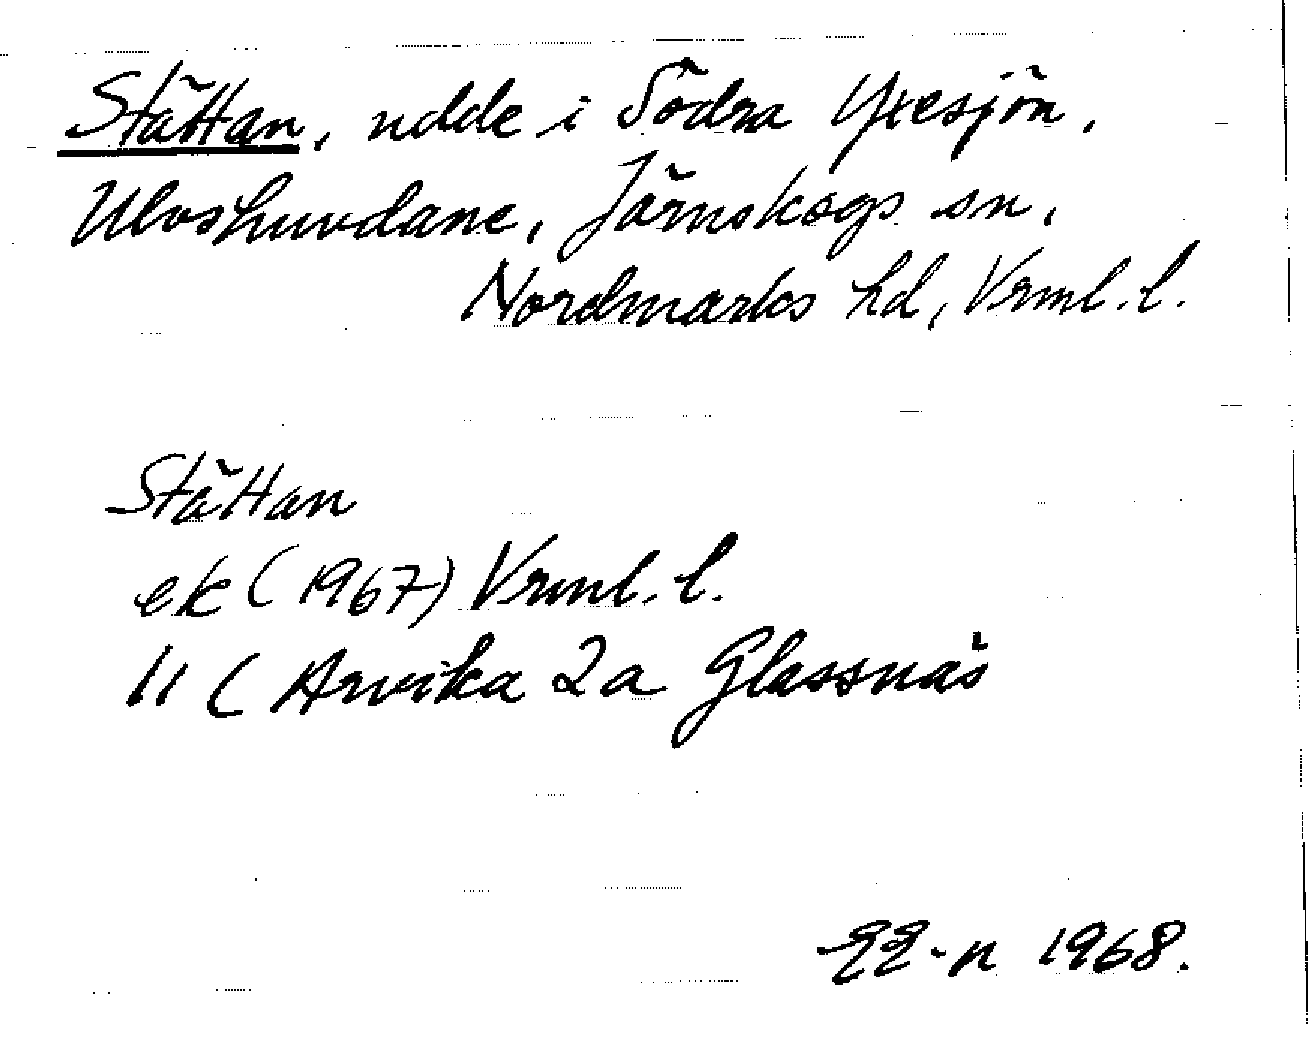 Stättan, udde i Södra Yxesjön,
Ulvshuvdane, Järnskogs sn,
Nordmarks hd, Vrml. l.
Stättan
ek (1967) Vrml. l.
11 C Arvika 2a Glassnäs
EE-n 1968.